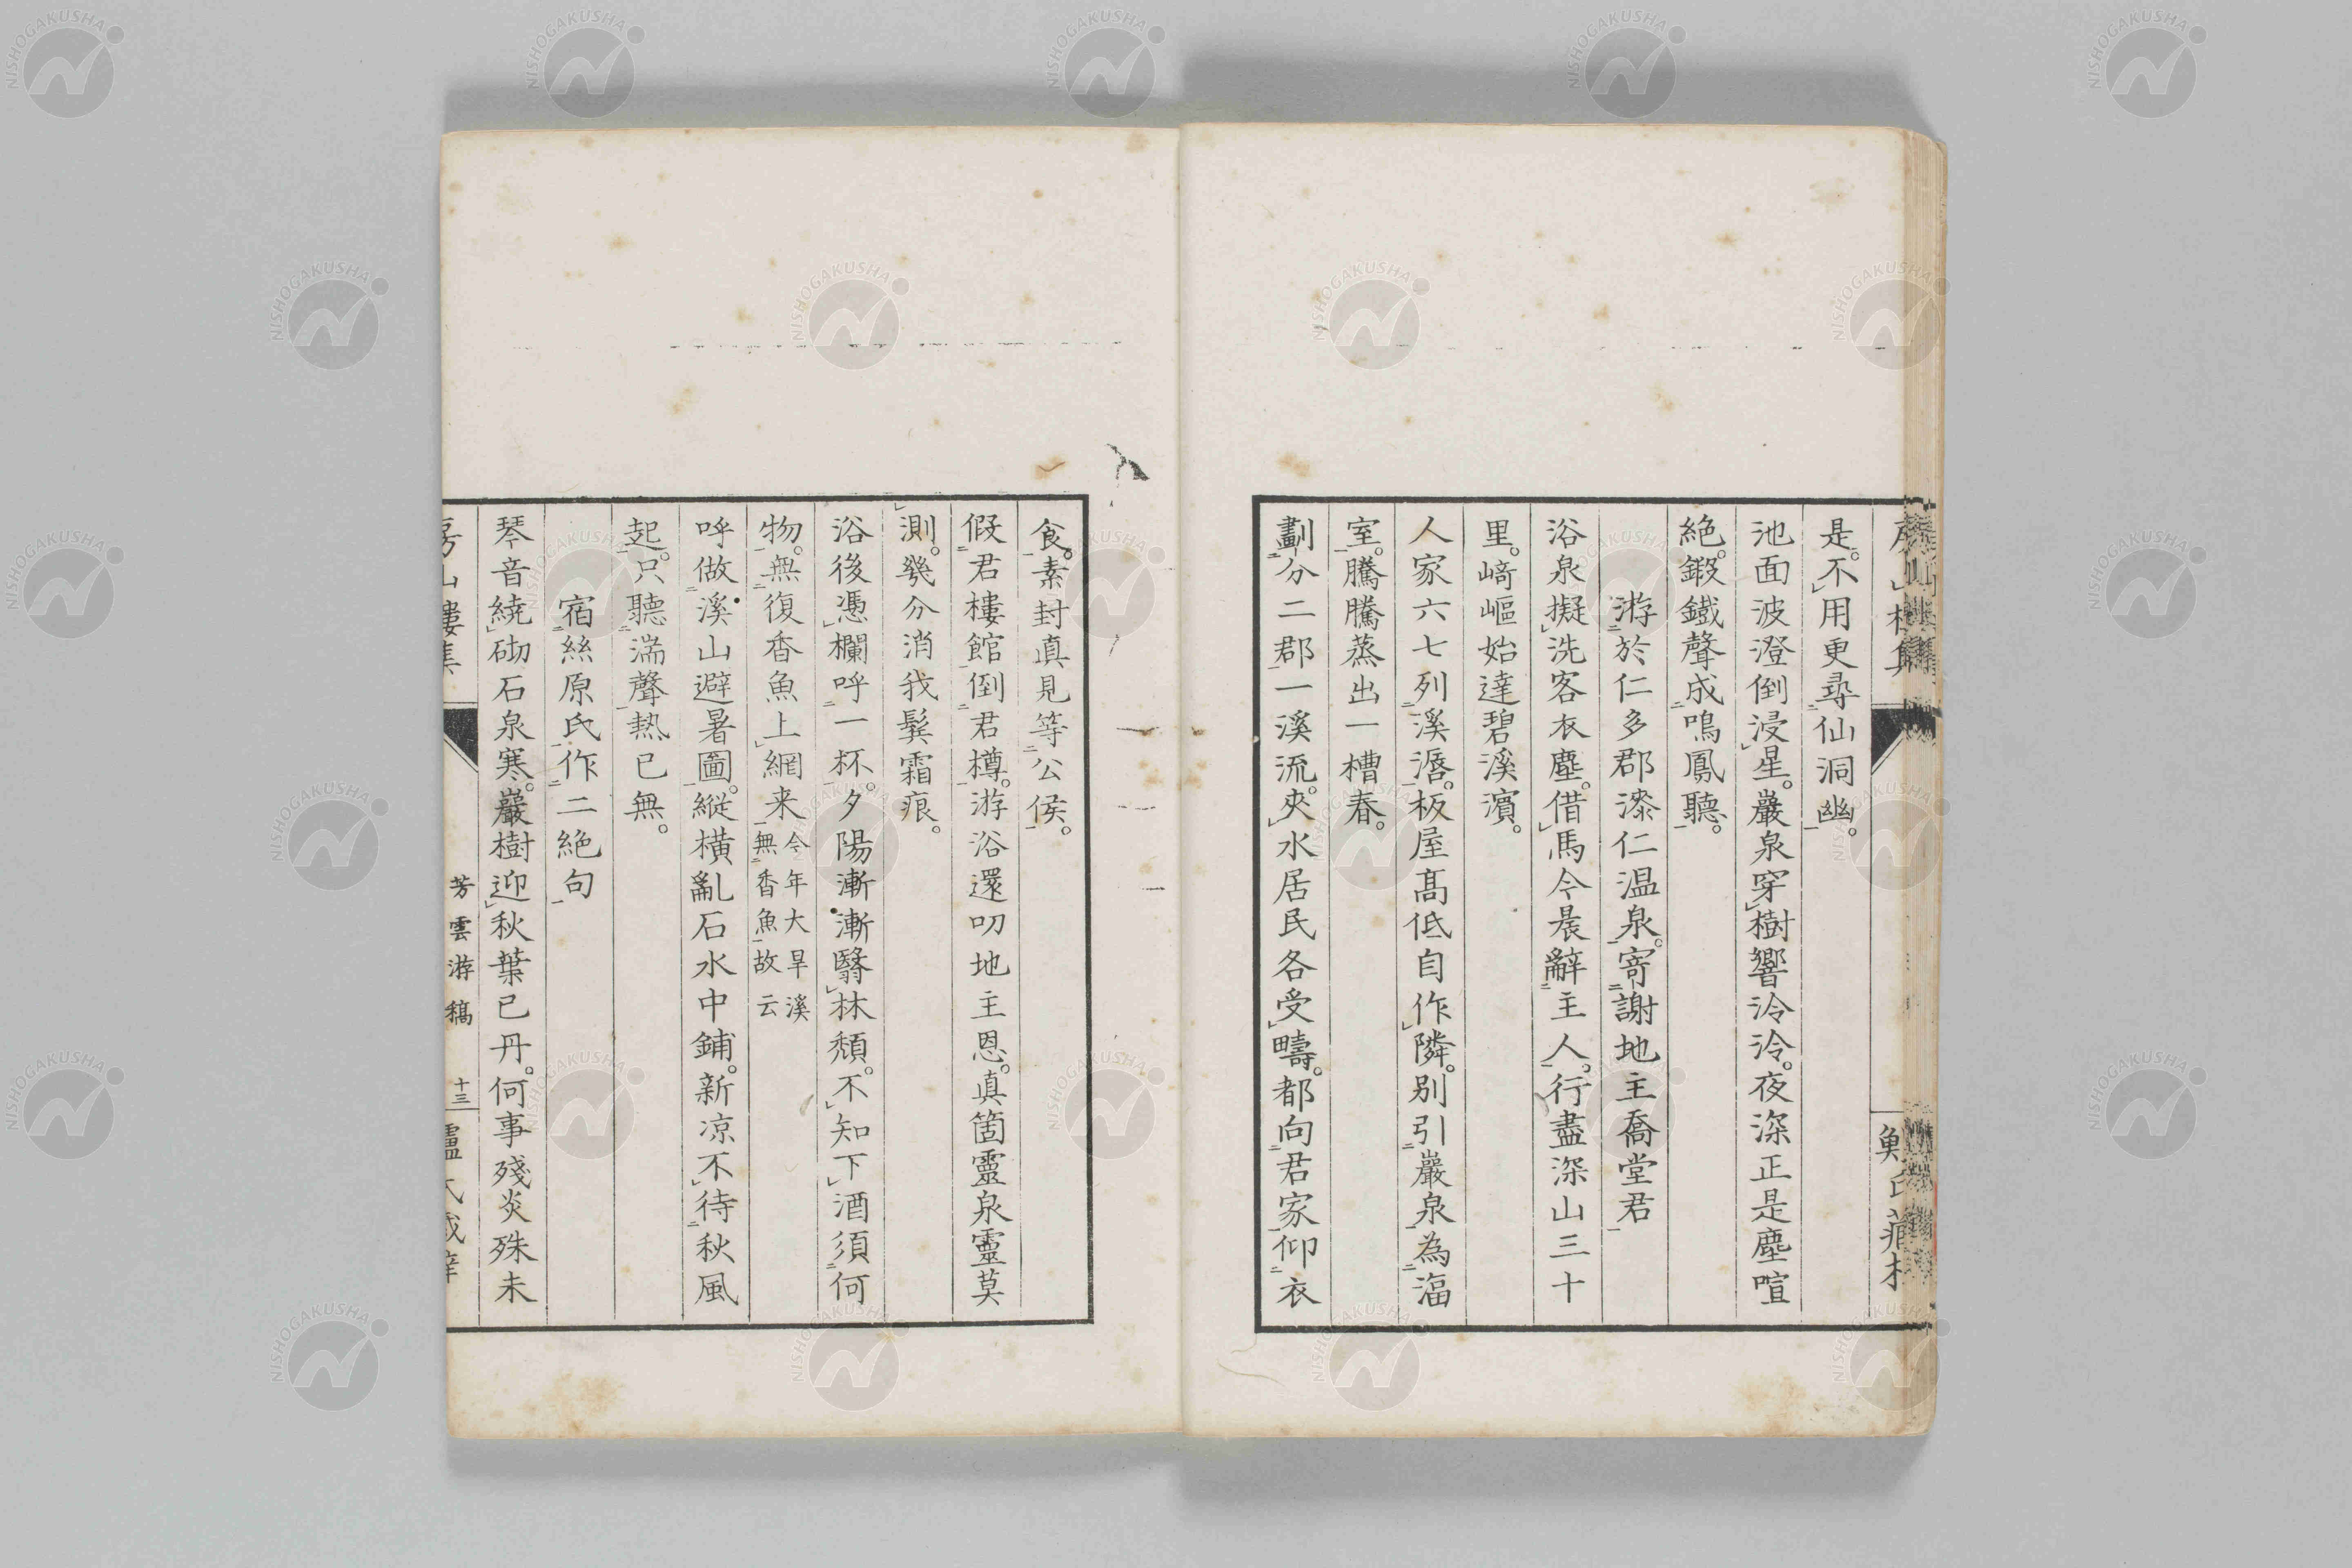 是。不用更尋仙洞幽。
池面波澄倒浸星。巖泉穿樹響泠泠。夜深正是塵喧
絕。鍛鐵聲成鳴鳳聽。
游於仁多郡漆仁温泉。寄謝地主喬堂君
浴泉擬洗客衣塵。借馬今晨辭主人。行盡深山三十
里。﨑嶇始達碧溪濱。
人家六七列溪漘。板屋髙低自作隣。別引巖泉為湢
室。騰騰蒸出一槽春。
劃分二郡一溪流。夾水居民各受疇。都向君家仰衣
食。素封真見等公侯。
假君樓館倒君樽。游浴還叨地主恩。真箇靈泉靈莫
測。幾分消我鬂霜痕。
浴後憑欄呼一杯。夕陽漸漸翳林頽。不知下酒須何
物。無復香魚上網来今年大旱溪無香魚故云
呼做溪山避暑圖。縱橫亂石水中鋪。新凉不待秋風
起。只聽湍聲熱已無。
宿絲原氏作二絶句
琴音繞砌石泉寒。巖樹迎秋葉已丹。何事殘炎殊未
芳雲游稿
十三
NISHOGAKUSHA